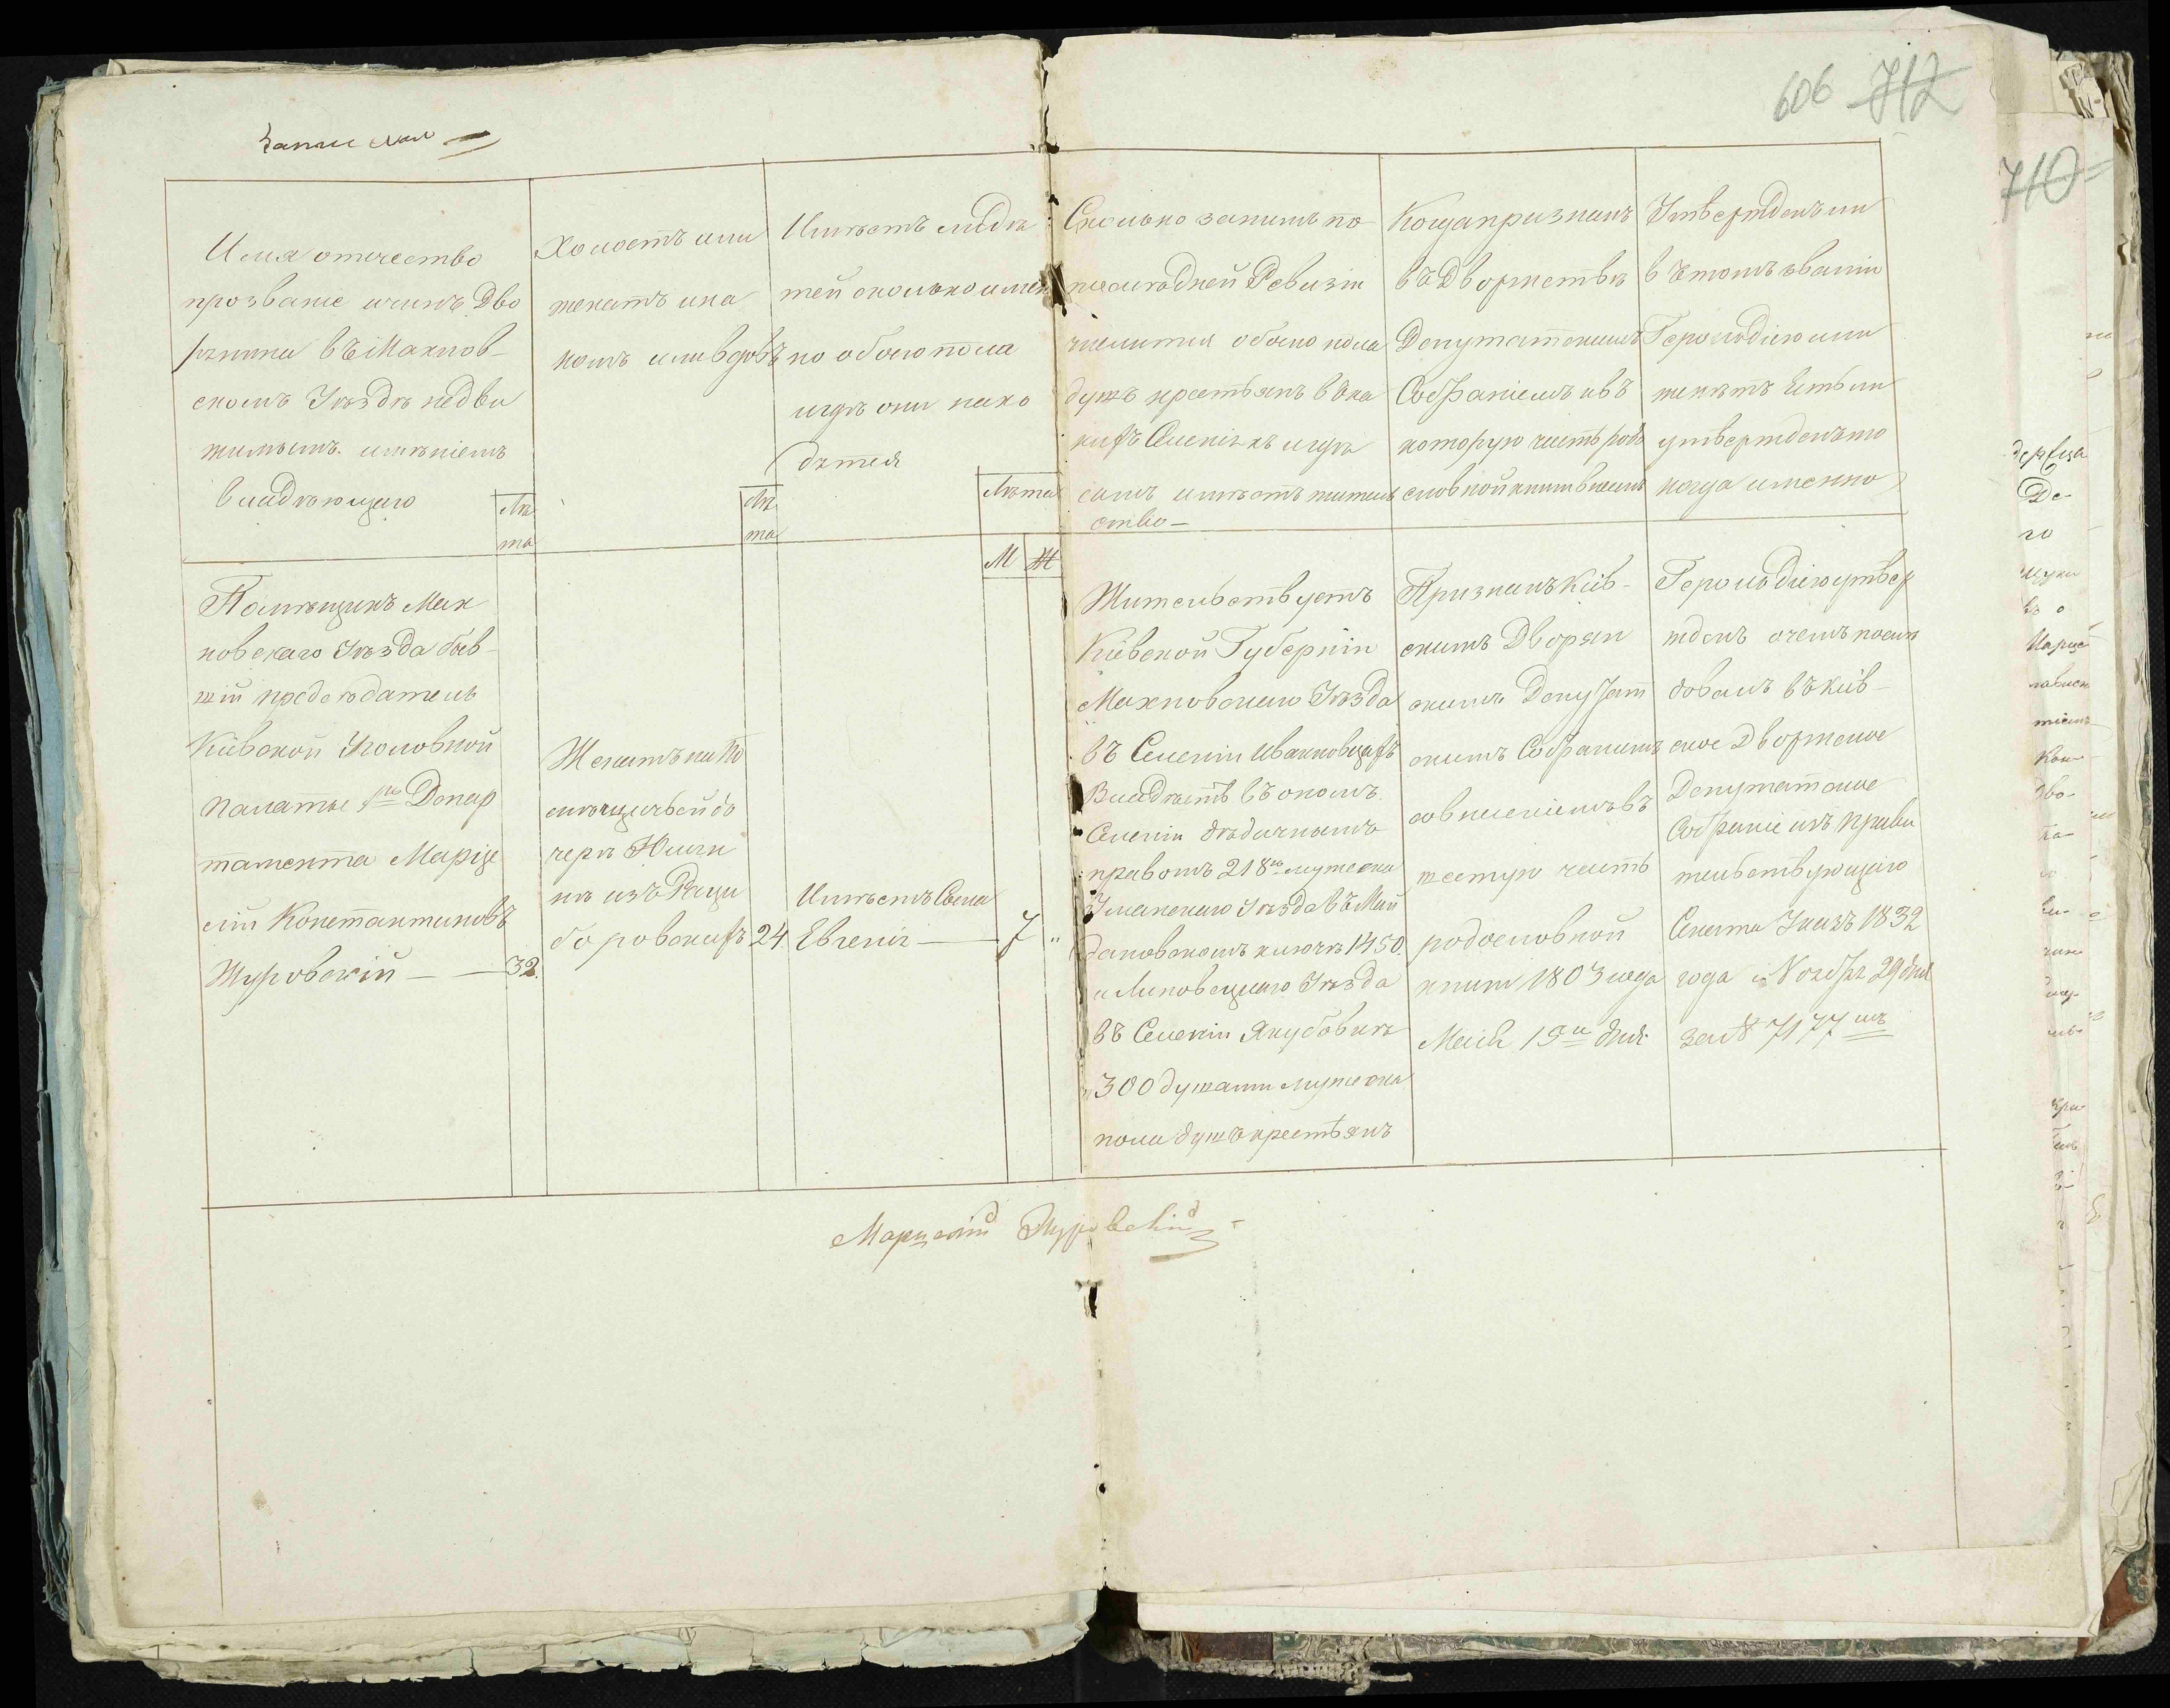 606 712
710
Запиская
Имя отечество
прозвание и чинъ Дво
рянина въ Махнов-
скомъ Уѣздѣ недви
жимымъ имѣніемъ
владѣющаго
Лѣ
та
Холостъ или
женатъ и на
комъ или вдовъ
Лѣ
та
Имѣетъ ли дѣ
тей сколько имен
но обоего пола
и гдѣ они нахо
дятся
Лѣта
М Ж
Сколько за нимъ по
послѣдней Ревизіи
числится обоего пола
душъ крестьянъ въ ка
кихъ Селеніяхъ и гдѣ
самъ имѣетъ житель
ство-
Когда признанъ
въ Дворянствѣ
Депутатскимъ
Собраніемъ и въ
которую часть родо
словной книги внесенъ
Утвержденъ ли
въ этомъ званіи
Герольдіею или
нѣтъ Естьли
утвержденъ то
когда именно
Помѣщикъ Мах
новскаго Уѣзда быв-
шій председатель
Кіевской Уголовной
палаты 1го Депар
тамента Марце
лій Константиновъ
Журовскій — — 32.
Женатъ на По
мѣщичьей до
черѣ Юлги
нѣ изъ Раци
боровскихъ 24
Имѣетъ Сына
Евгенія — 7 "
Жительствуетъ
Кіевской Губерніи
Махновскаго Уѣзда
въ Селеніи Иванковцахъ
Владѣетъ въ ономъ
Селеніи дѣдичнымъ
правомъ 218ю мужеска
Уманскаго Уѣзда въ Май
дановскомъ ключѣ 1450.
и Липовецкаго Уѣзда
въ Селеніи Якубовкѣ
300 душами мужеска
пола душъ крестьянъ
Признанъ Кіев-
скимъ Дворян
скимъ Депутат
скимъ Собраніемъ
со внесеніемъ въ
шестую часть
родословной
книги 1803 года
Маія 19го дня.
Герольдіею утвер
жденъ о чемъ послѣ
довалъ въ Кіев-
ское Дворянское
Депутатское
Собраніе изъ Прави
тельствующаго
Сената Указъ 1832
года Ноября 29 дня
за № 7177мъ
Марцелій Журовскій